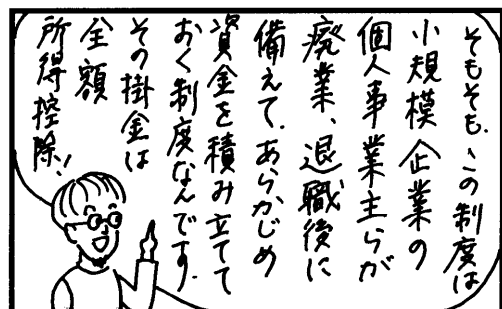 そもそも、この制度は
小規模企業の
個人事業主らが
廃業、退職後に
備えて、あらかじめ
資金を積み立てて
おく制度なんです。
その掛金は
全額
所得控除!